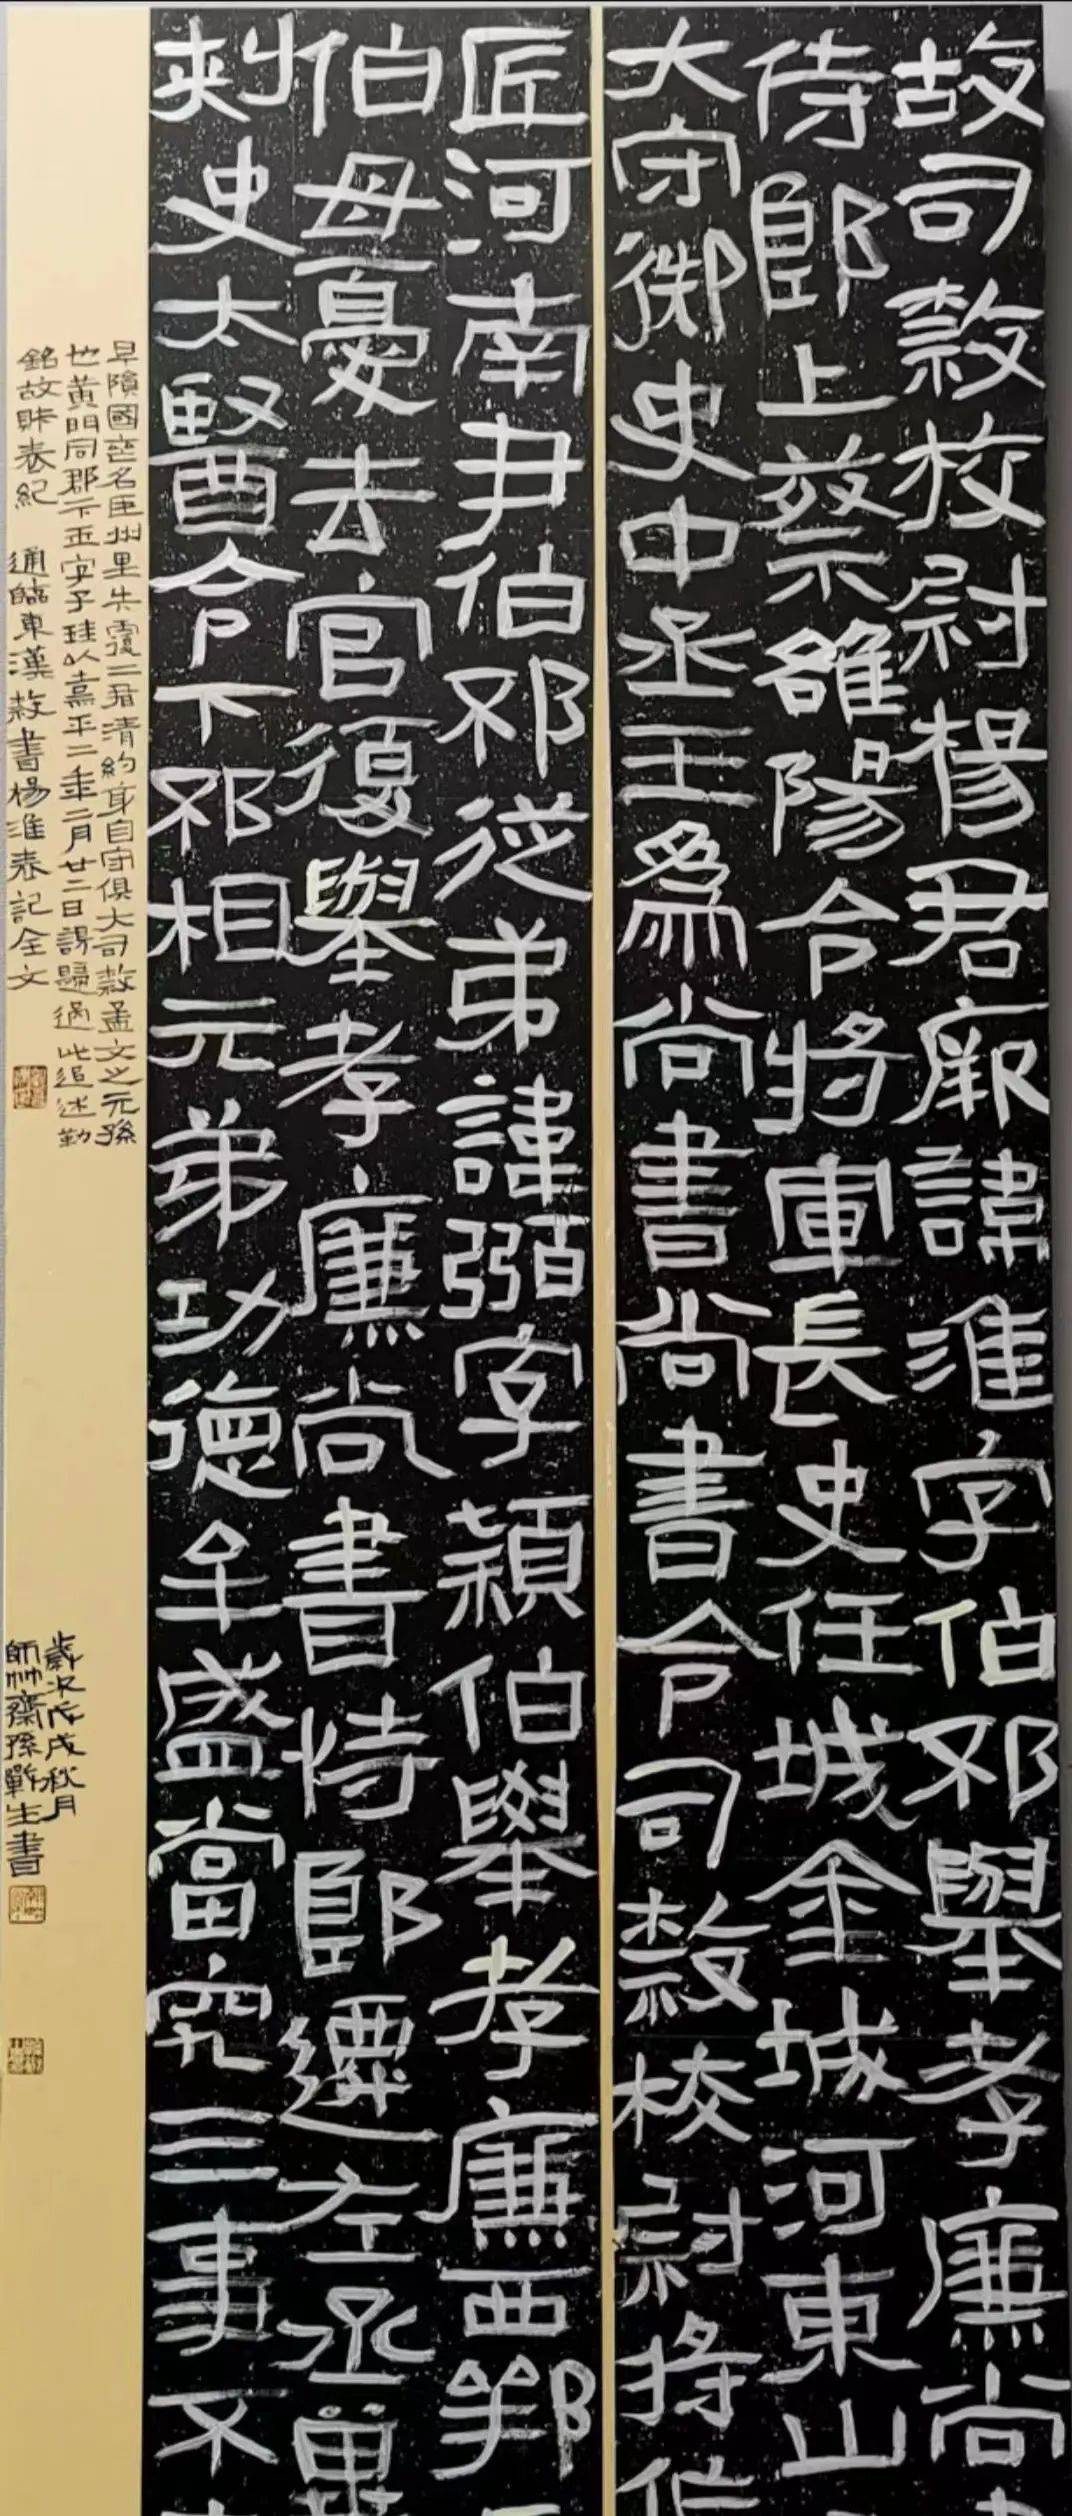 故司隸校尉楊君厥諱淮字伯邳舉孝廉尚
侍郎上蔡雒陽令將軍長史任城金城河東山
大守御史中丞王為尚書尚書令司隸校尉將作
匠河南尹伯邳從弟諱弼字潁伯舉孝廉西鄂
伯母憂去官復舉孝廉尚書侍郎遷左丞冀
刺史太醫令下邳相元弟功德牟盛當究三事不
早隕國喪名臣州里失覆二君清約身自守俱大司隸孟文之元孫
也黃門同郡卞玉字子珪以熹平二年二月廿二日謁歸過此追述勤
銘故財表紀 通臨東漢隸書楊淮表記全文
歲次戊戌秋月
師竹齋孫戰生書